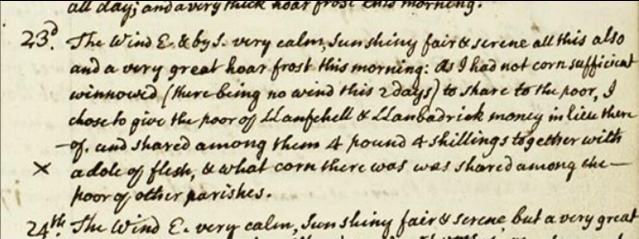 all day; and a very thick hoar frost this morning.
23d. The Wind E. & by S. very calm, Sun shiny fair & serene all this also
and a very great hoar frost this morning: As I had not corn sufficient
winnowed (there being no wind this 2 days) to share to the poor, I
chose to give the poor of Llanfchell & Llanbadrick money in lieu there
-of. and shared among them 4 pound 4 shillings together with
x a dole of flesh, & what corn there was was shared among the —
poor of other parishes.
24th. The Wind E. very calm, Sun shiny fair & serene but a very great